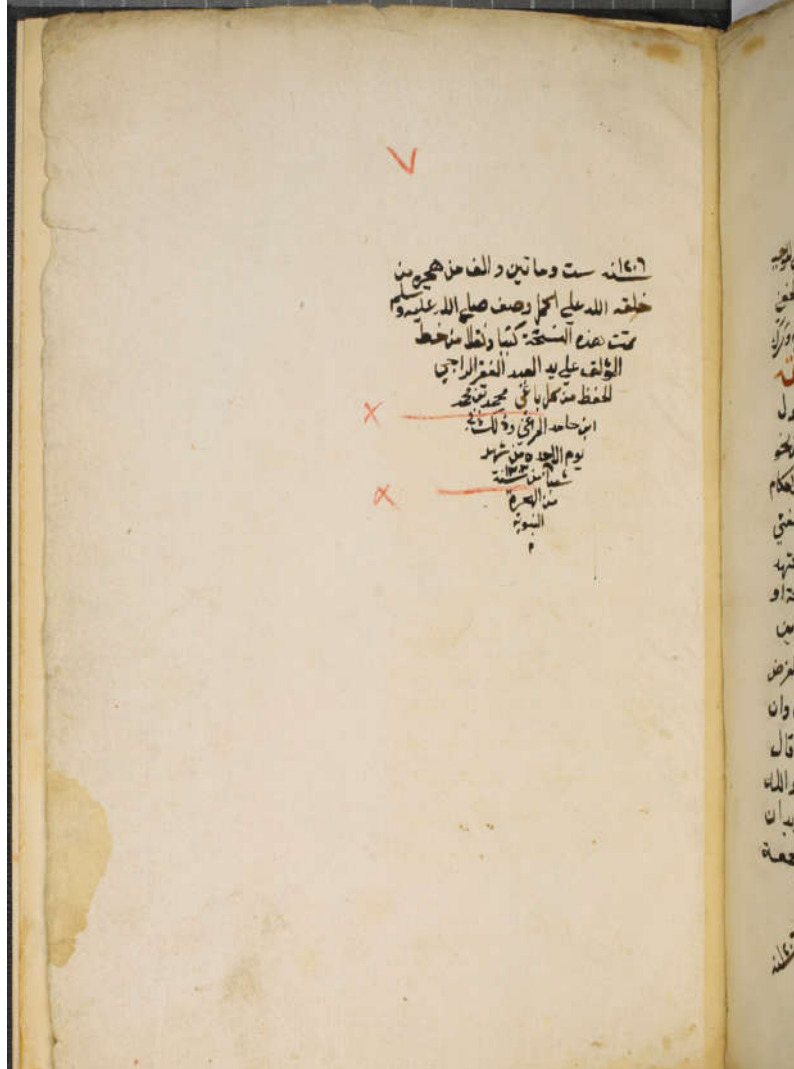 ١٢٠٦ سنه ست وماتين والف من هجرة من
خلقه الله علي اكمل وصف صلي الله عليه وسلم
تمت هذه النسخة كتبا ونقلا من خط
المؤلف علي يد العبد الفقير الراجي
الحفظ من كل باغي محمد بن محمد
ابن حامد المراغي وذلك في
يوم الاحد ٥ من شهر
شعبان سنة ١٣٠٣
من الهجرة
النبوية
م